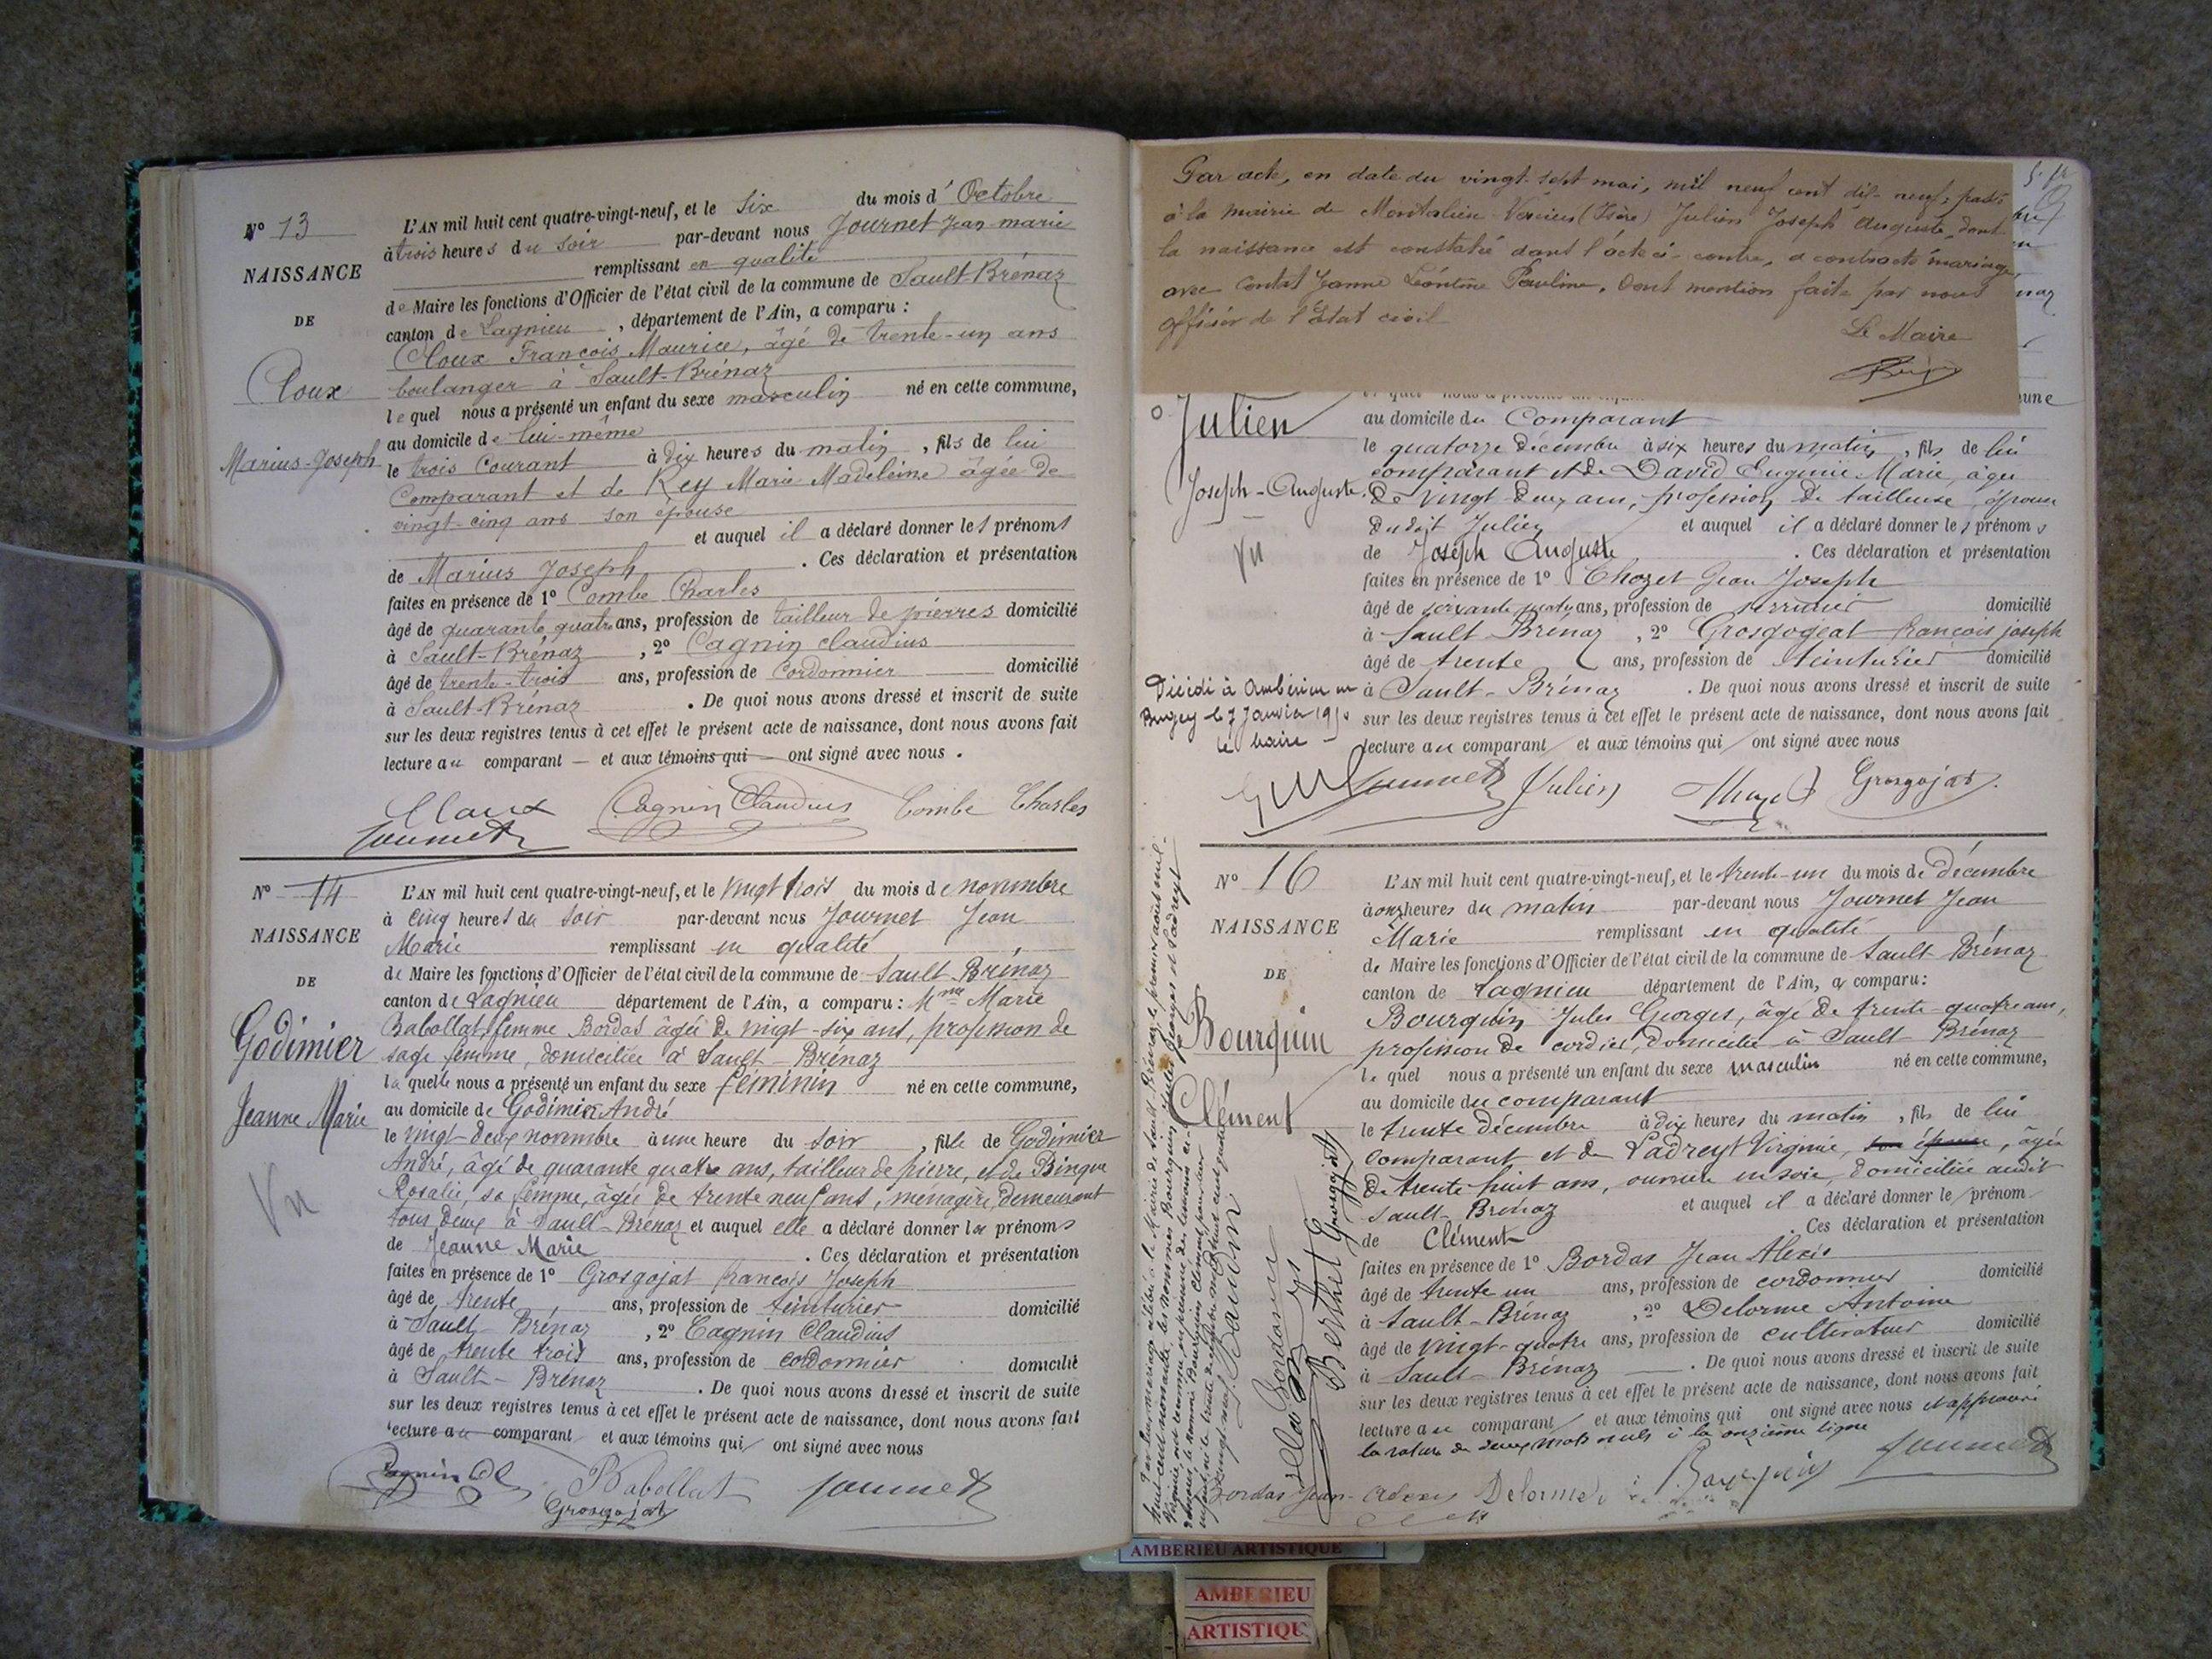 Nº 13
NAISSANCE
DE
Cloux
Marius-Joseph
L'AN mil huit cent quatre-vingt-neuf, et le Six du mois d'Octobre
à trois heures du soir par-devant nous Journet Jean marie
remplissant en qualité
de Maire les fonctions d'Officier de l'état civil de la commune de Sault-Brénaz
canton de Lagnieu, département de l'Ain, a comparu :
Cloux François Maurice, âgé de trente-un ans
boulanger à Sault-Brénaz
lequel nous a présenté un enfant du sexe masculin né en cette commune,
au domicile de lui-même
le trois Courant à dix heures du matin, fils de lui
Comparant et de Rey Marie Madeleine âgée de
vingt-cinq ans son épouse
et auquel il a déclaré donner les prénoms
de Marius Joseph. Ces déclaration et présentation
faites en présence de 1º Combe Charles
âgé de quarante quatre ans, profession de tailleur de pierres domicilié
à Sault-Brénaz, 2º Cagnin claudius
âgé de trente-trois ans, profession de Cordonnier domicilié
à Sault-Brénaz. De quoi nous avons dressé et inscrit de suite
sur les deux registres tenus à cet effet le présent acte de naissance, dont nous avons fait
lecture au comparant — et aux témoins qui — ont signé avec nous.
Cloux Cagnin Claudius Combe Charles
Journet
Nº 14
NAISSANCE
DE
Godimier
Jeanne Marie
Vu
L'AN mil huit cent quatre-vingt-neuf, et le vingt trois du mois de novembre
à cinq heures du soir par-devant nous Journet Jean
Marie remplissant en qualité
de Maire les fonctions d'Officier de l'état civil de la commune de Sault-Brénaz
canton de Lagnieu département de l'Ain, a comparu : Mme Marie
Babollat, femme Bordas âgée de vingt-six ans, profession de
sage femme, domiciliée à Sault-Brénaz
laquelle nous a présenté un enfant du sexe féminin né en cette commune,
au domicile de Godimier André
le vingt-deux novembre à une heure du soir, fille de Godimier
André, âgé de quarante quatre ans, tailleur de pierre, et de Bingue
Rosalie, sa femme, âgée de trente neuf ans, ménagère, demeurant
tous deux à Sault-Brénaz et auquel elle a déclaré donner les prénoms
de Jeanne Marie. Ces déclaration et présentation
faites en présence de 1º Grosgojat françois Joseph
âgé de trente ans, profession de teinturier domicilié
à Sault-Brénaz, 2º Cagnin Claudius
âgé de trente trois ans, profession de cordonnier domicilié
à Sault-Brénaz. De quoi nous avons dressé et inscrit de suite
sur les deux registres tenus à cet effet le présent acte de naissance, dont nous avons fait
lecture au comparant et aux témoins qui ont signé avec nous
Cagnin Cl Babollat Journet
Grosgojat
Par acte, en date du vingt-sept mai, mil neuf cent dix-neuf, passé
à la mairie de Montalieu-Vercieu (Isère) Julien Joseph Auguste, dont
la naissance est constatée dans l'acte ci-contre, a contracté mariage
avec Contat Jeanne Léontine Pauline. Dont mention faite par nous
officier de l'Etat civil
Le Maire
Julien
Joseph-Auguste
Vu
Décédé à Ambérieu en
Bugey le 7 Janvier 195
le Maire
au domicile du Comparant
le quatorze décembre à six heures du matin, fils de lui
comparant et de David Eugenie Marie, âgée
de vingt-deux ans, profession de tailleuse, épouse
dudit Julien et auquel il a déclaré donner les prénoms
de Joseph Auguste. Ces déclaration et présentation
faites en présence de 1º Chozet Jean Joseph
âgé de soixante ans, profession de serrurier domicilié
à Sault Brénaz, 2º Grosgogeat françois joseph
âgé de trente ans, profession de teinturier domicilié
à Sault-Brénaz. De quoi nous avons dressé et inscrit de suite
sur les deux registres tenus à cet effet le présent acte de naissance, dont nous avons fait
lecture au comparant et aux témoins qui ont signé avec nous
Journet Julien Grosgojat
Nº 16
NAISSANCE
DE
Bourguin
Clément
L'AN mil huit cent quatre-vingt-neuf, et le trente-un du mois de décembre
à onze heures du matin par-devant nous Journet Jean
Marie remplissant en qualité
de Maire les fonctions d'Officier de l'état civil de la commune de Sault Brénaz
canton de Lagnieu département de l'Ain, a comparu :
Bourguin Jules Georges, âgé de trente-quatre ans,
profession de cordier, domicilié à Sault Brénaz
lequel nous a présenté un enfant du sexe masculin né en cette commune,
au domicile du comparant
le trente décembre à dix heures du matin, fils de lui
comparant et de Ladreyt Virginie, son épouse, âgée
de trente huit ans, ouvrière en soie, domiciliée audit
Sault-Brénaz et auquel il a déclaré donner le prénom
de Clément. Ces déclaration et présentation
faites en présence de 1º Bordas Jean Alexis
âgé de trente un ans, profession de cordonnier domicilié
à Sault-Brénaz, 2º Delorme Antoine
âgé de vingt-quatre ans, profession de cultivateur domicilié
à Sault-Brénaz. De quoi nous avons dressé et inscrit de suite
sur les deux registres tenus à cet effet le présent acte de naissance, dont nous avons fait
lecture au comparant et aux témoins qui ont signé avec nous et approuvé
la rature de deux mots nuls à la onzième ligne
Bordas Jean-Alexis Delorme Bourguin Journet
Berthet Grosgojat
AMBERIEU ARTISTIQUE
AMBERIEU
ARTISTIQU